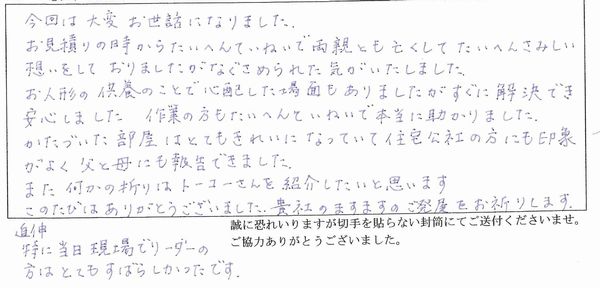 今回は大変お世話になりました.
お見積りの時からたいへんていねいで両親とも亡くしてたいへんさみしい
想いをしておりましたがなぐさめられた気がいたしました.
お人形の供養のことで心配した場面もありましたがすぐに解決でき
安心しました 作業の方もたいへんていねいで本当に助かりました.
かたづいた部屋はとてもきれいになっていて住宅公社の方にも印象
がよく父と母にも報告できました.
また何かの折りはトーコーさんを紹介したいと思います
このたびはありがとうございました.貴社のますますのご発展をお祈りします.
誠に恐れいりますが切手を貼らない封筒にてご送付くださいませ。
ご協力ありがとうございました。
追伸
特に当日現場でリーダーの
方はとてもすばらしかったです.